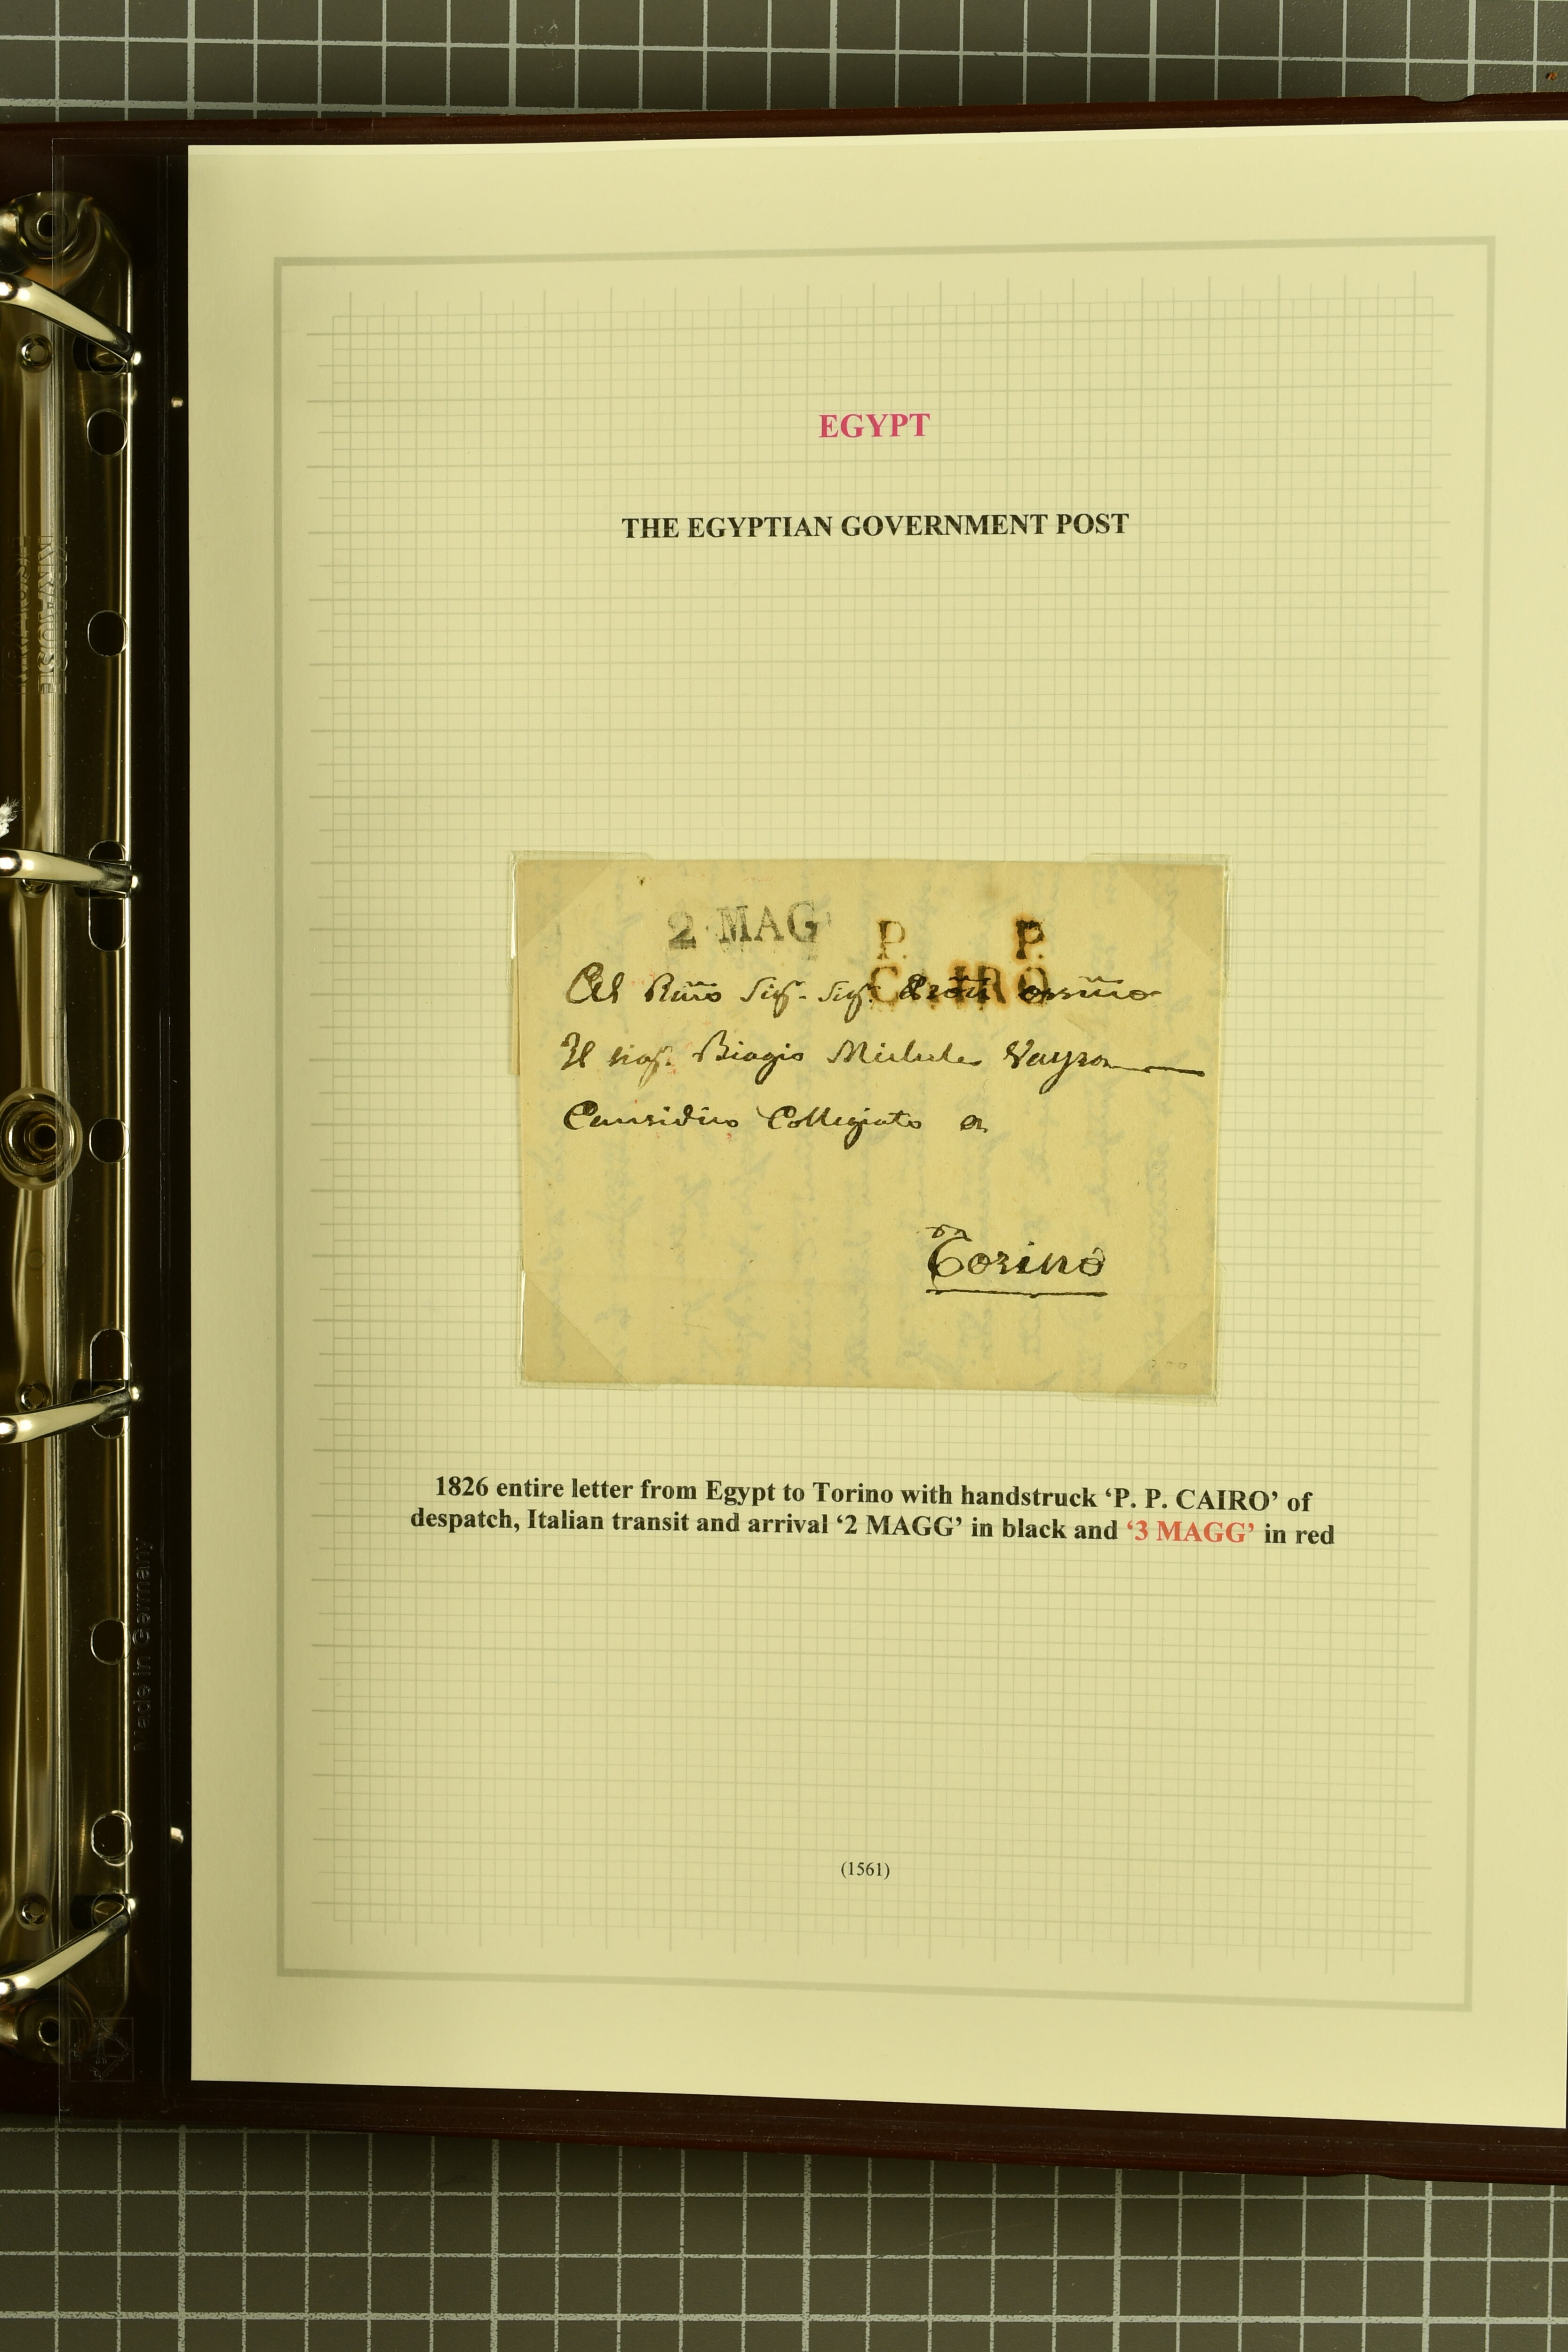 EGYPT
THE EGYPTIAN GOVERNMENT POST
2 MAG
P. P.
CAIRO
Al Sig. Sig.
Il Sig. Biagio Michele Vayra
Causidico Collegiato a
Torino
1826 entire letter from Egypt to Torino with handstruck ‘P. P. CAIRO’ of
despatch, Italian transit and arrival ‘2 MAGG’ in black and ‘3 MAGG’ in red
(1561)
KRAUSE
Made in Germany